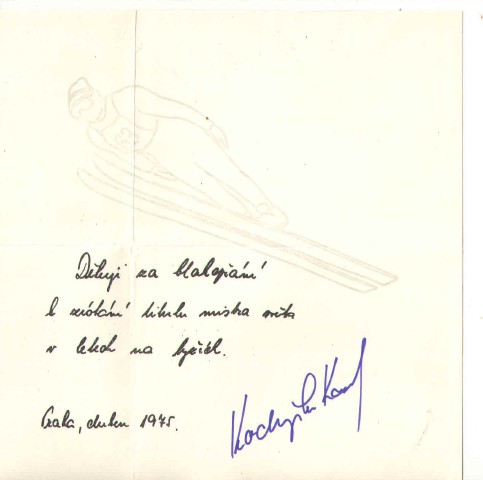 Děkuji za blahopřání
k získání titulu mistra světa
v letech na lyžích.
Praha, duben 1975.
Kodejška Karel
63